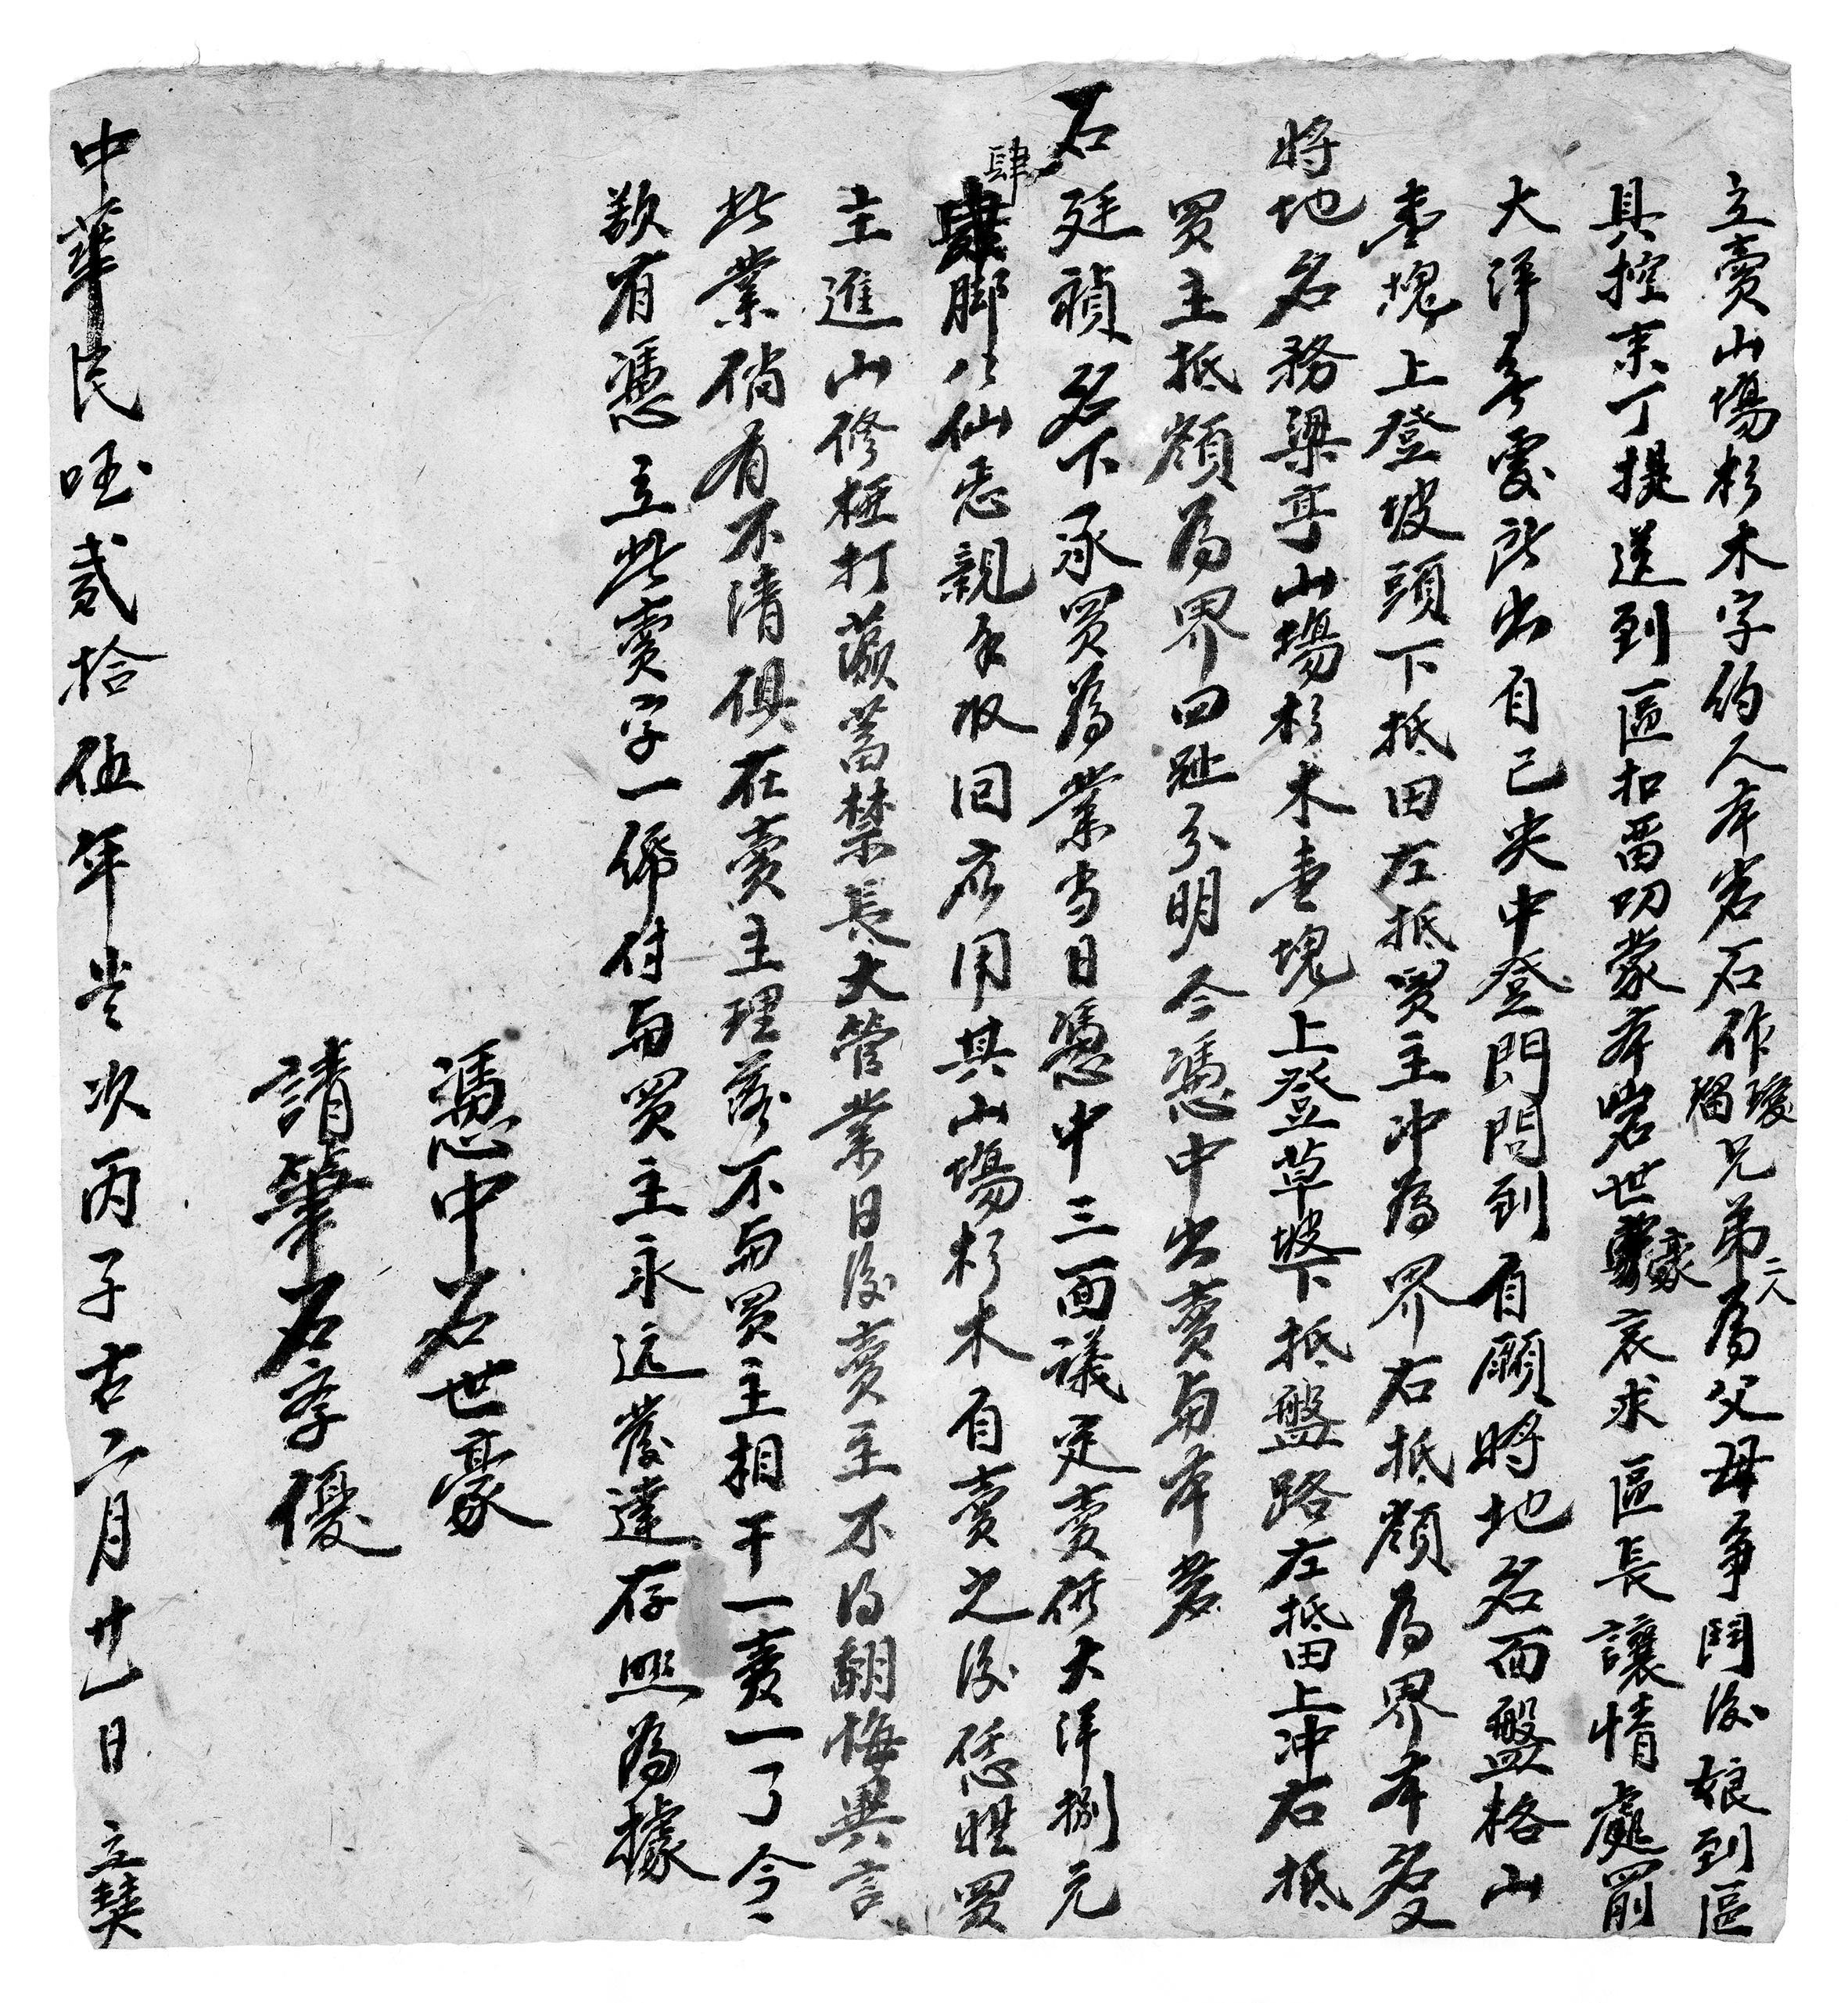 立賣山塲杉木字的人本岩石作瓊瑠兄弟二人為父母爭鬥後娘到區
具控末丁提送到區扣畱叨蒙本岩世豪哀求區長讓情處罰
大洋無處所出自己央中登門問到自願將地名面盤格山
壹塊上登坡頭下抵田左抵買主冲為界右抵嶺為界又
將地名務梁亭山塲杉木壹塊上登草坡下抵盤路左抵田上冲右抵
買主抵嶺為界四趾分明今憑中出賣与本岩
石廷禎名下承買為業当日憑中三面議定賣价大洋捌元
肆脚八仙悉親手收囘應用其山塲杉木自賣之後恁憑買
主進山修極打蔸蓄禁長大管業日後賣主不得翻悔異言
此業倘有不清俱在賣主理落不与買主相干一賣一了今
欲有憑立此賣字一帋付与買主永遠發達存照為據
憑中石世豪
請筆石孝優
中華民囯貳拾伍年嵗次丙子古二月廿一日 立契